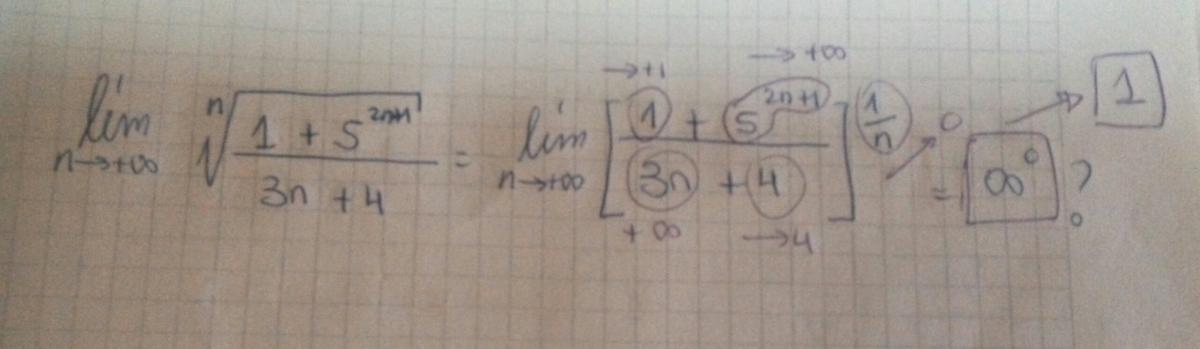 lim n→+∞ ⁿ√((1 + 5^(2n+1))/(3n + 4)) = lim n→+∞ [(1 + 5^(2n+1))/(3n + 4)]^(1/n) = ∞⁰ ? → 1
→+1 →+∞ → 0
+∞ →4